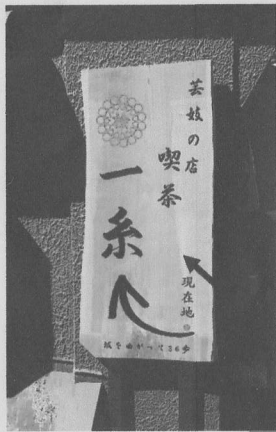 芸妓の店
喫茶
一糸
現在地
坂をあがって36歩